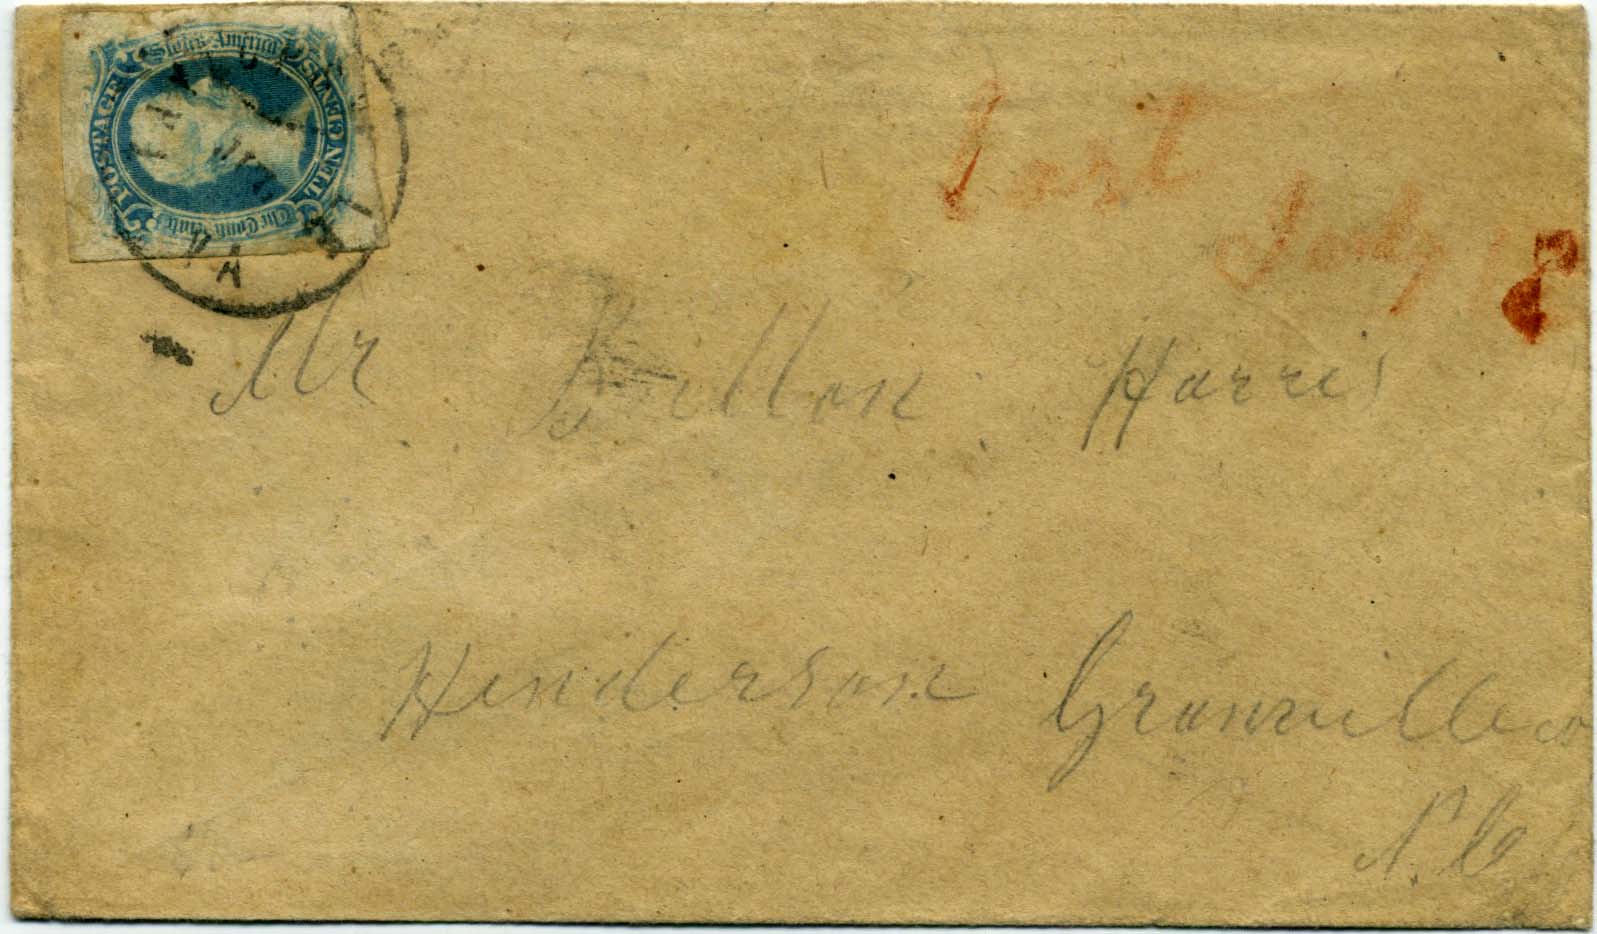 The Confederate States America
POSTAGE
TEN CENTS
VA
last
July 18
Mr Dillon Harris
Henderson Granville co
N. C.